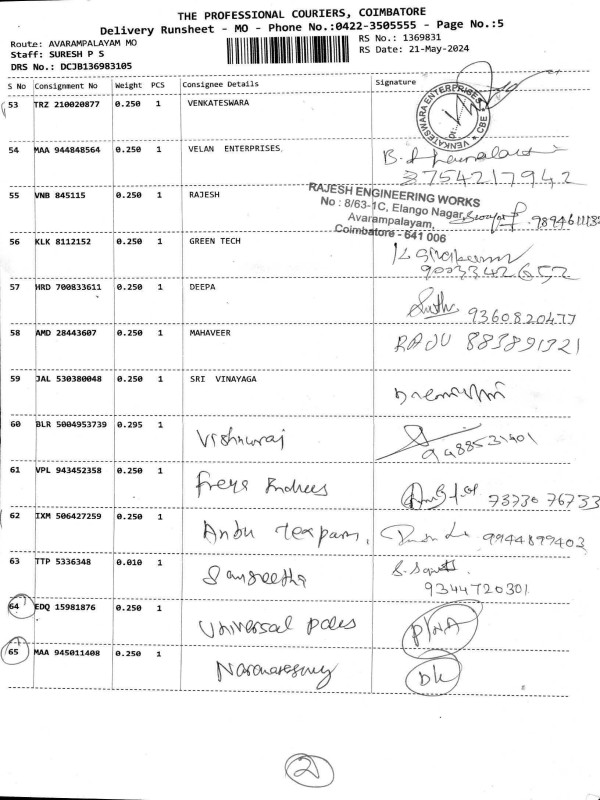 THE PROFESSIONAL COURIERS, COIMBATORE
Delivery Runsheet - MO - Phone No.:0422-3505555 - Page No.:5
Route: AVARAMPALAYAM MO
RS No.: 1369831
Staff: SURESH P S
RS Date: 21-May-2024
DRS No.: DCJB136983105
S No Consignment No Weight PCS Consignee Details Signature
53 TRZ 210020877 0.250 1 VENKATESWARA
VENKATESWARA ENTERPRISES CBE
54 MAA 944848564 0.250 1 VELAN ENTERPRISES.
3754217942
55 VNB 845115 0.250 1 RAJESH
RAJESH ENGINEERING WORKS
No : 8/63-1C, Elango Nagar,
Avarampalayam,
Coimbatore - 641 006
56 KLK 8112152 0.250 1 GREEN TECH
9003342652
57 HRD 700833611 0.250 1 DEEPA
9360820477
58 AMD 28443607 0.250 1 MAHAVEER RAJU 883891321
59 JAL 530380048 0.250 1 SRI VINAYAGA
60 BLR 5004953739 0.295 1 Vishnuraj
9488531401
61 VPL 943452358 0.250 1 73730 76733
62 IXM 506427259 0.250 1 Anbu 9944899403
63 TTP 5336348 0.010 1 Sangeetha
9344720301
64 EDQ 15981876 0.250 1 Universal poles P/NA
65 MAA 945011408 0.250 1 DK
2